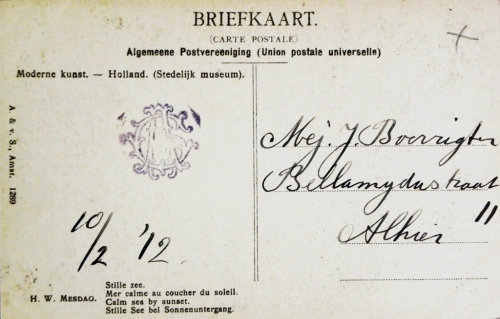 BRIEFKAART.
(CARTE POSTALE)
Algemeene Postvereeniging (Union postale universelle)
Moderne kunst. — Holland. (Stedelijk museum).
A. & v. S., Amst. 1289
10/2 '12.
Mej. J. Boerrigter
Bellamydwstraat
11
Alhier
H. W. MESDAG.
Stille zee.
Mer calme au coucher du soleil.
Calm sea by sunset.
Stille See bei Sonnenuntergang.